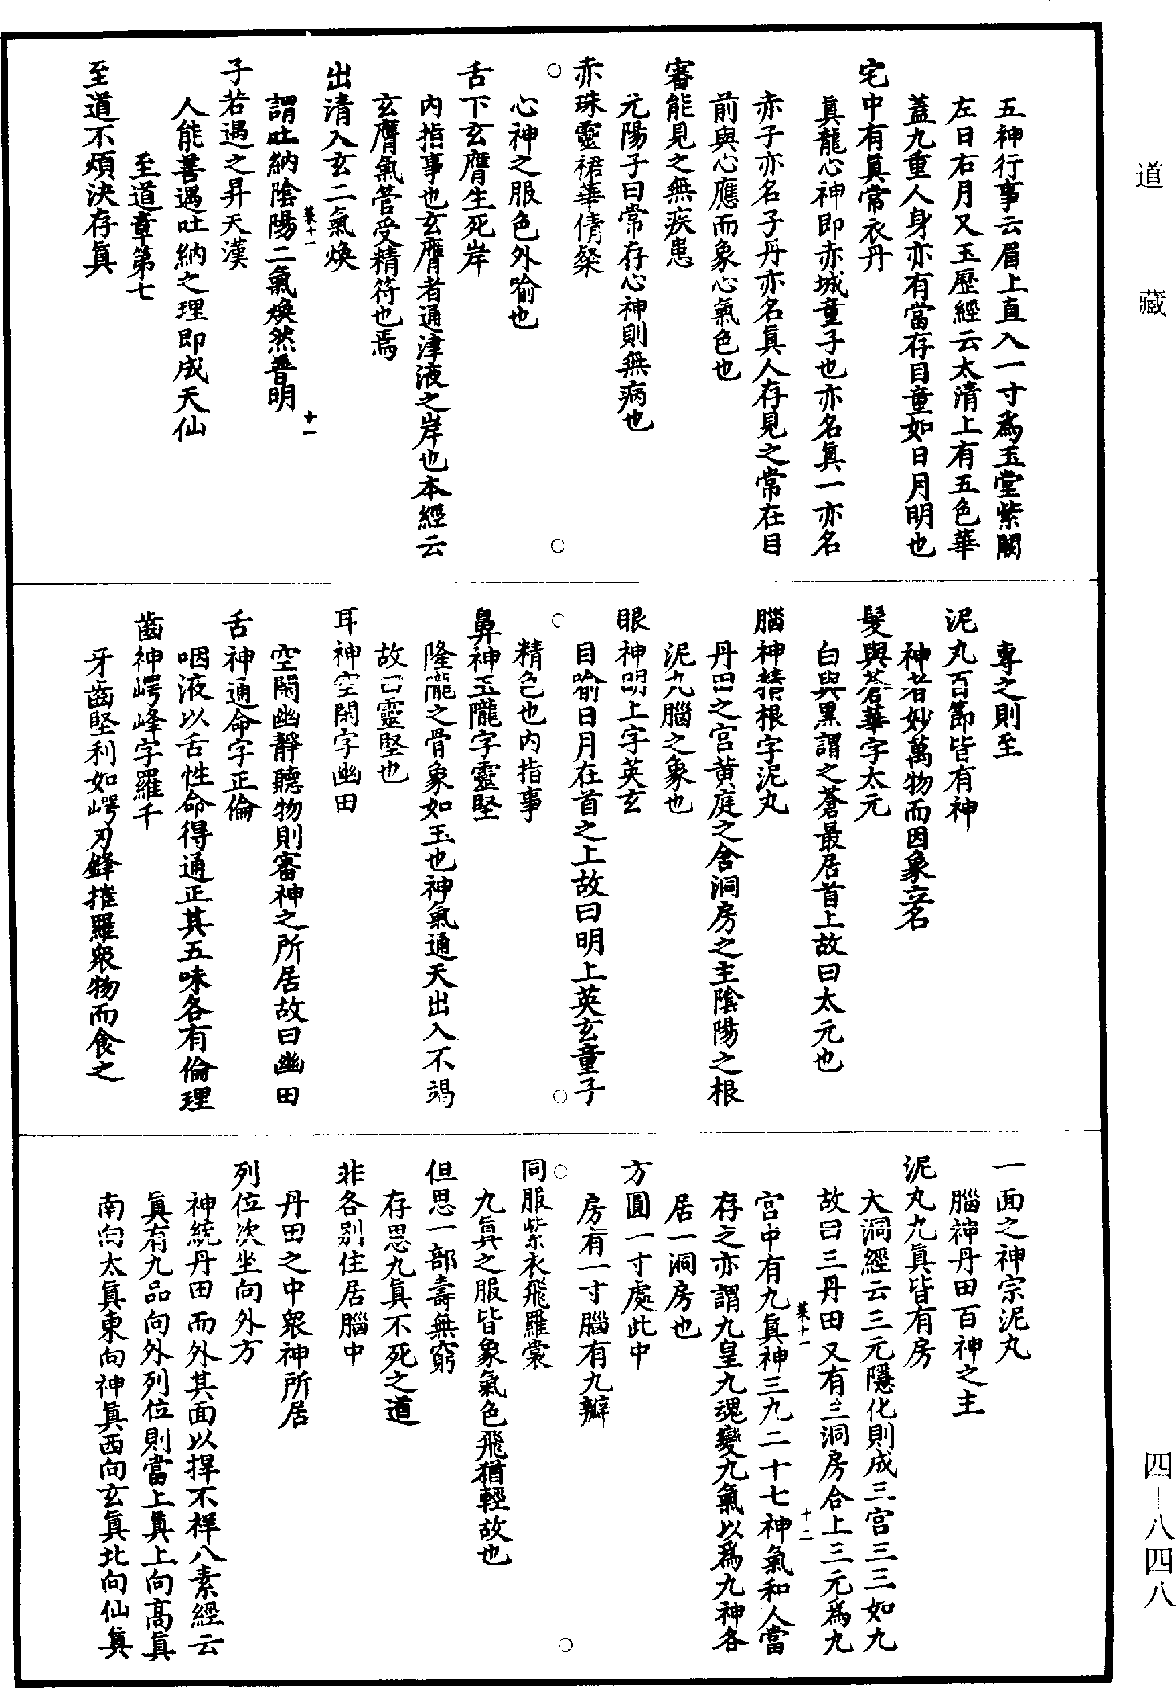 道藏
四—八四八
五神行事云眉上直入一寸爲玉堂紫闕
左日右月又玉歷經云太清上有五色華
蓋九重人身亦有當存目童如日月明也
宅中有眞常衣丹
眞龍心神即赤城童子也亦名眞一亦名
赤子亦名子丹亦名眞人存見之常在目
前與心應而象心氣色也
審能見之無疾患
元陽子曰常存心神則無病也
赤珠靈裙華倩粲
心神之服色外喻也
舌下玄膺生死岸
內指事也玄膺者通津液之岸也本經云
玄膺氣管受精符也焉
出清入玄二氣煥
謂吐納陰陽二氣煥然普明
菜十一
十一
子若遇之昇天漢
人能善遇吐納之理即成天仙
至道章第七
至道不煩決存眞
專之則至
泥丸百節皆有神
神者妙萬物而因象立名
髮與蒼華字太元
白與黑謂之蒼最居首上故曰太元也
腦神精根字泥丸
丹田之宮黃庭之舍洞房之主陰陽之根
泥丸腦之象也
眼神明上字英玄
目喻日月在首之上故曰明上英玄童子
精色也內指事
鼻神玉隴字靈堅
隆隴之骨象如玉也神氣通天出入不竭
故曰靈堅也
耳神空閑字幽田
空閑幽靜聽物則審神之所居故曰幽田
舌神通命字正倫
咽液以舌性命得通正其五味各有倫理
齒神崿峰字羅千
牙齒堅利如崿刃鋒摧羅衆物而食之
一面之神宗泥丸
腦神丹田百神之主
泥丸九眞皆有房
大洞經云三元隱化則成三宮三三如九
故曰三丹田又有三洞房合上三元爲九
宮中有九眞神三九二十七神氣和人當
菜十一
十二
存之亦謂九皇九魂變九氣以爲九神各
居一洞房也
方圓一寸處此中
房有一寸腦有九瓣
同服紫衣飛羅裳
九眞之服皆象氣色飛猶輕故也
但思一部壽無窮
存思九眞不死之道
非各別住居腦中
丹田之中衆神所居
列位次坐向外方
神統丹田而外其面以捍不祥八素經云
眞有九品向外列位則當上眞上向高眞
南向太眞東向神眞西向玄眞北向仙眞